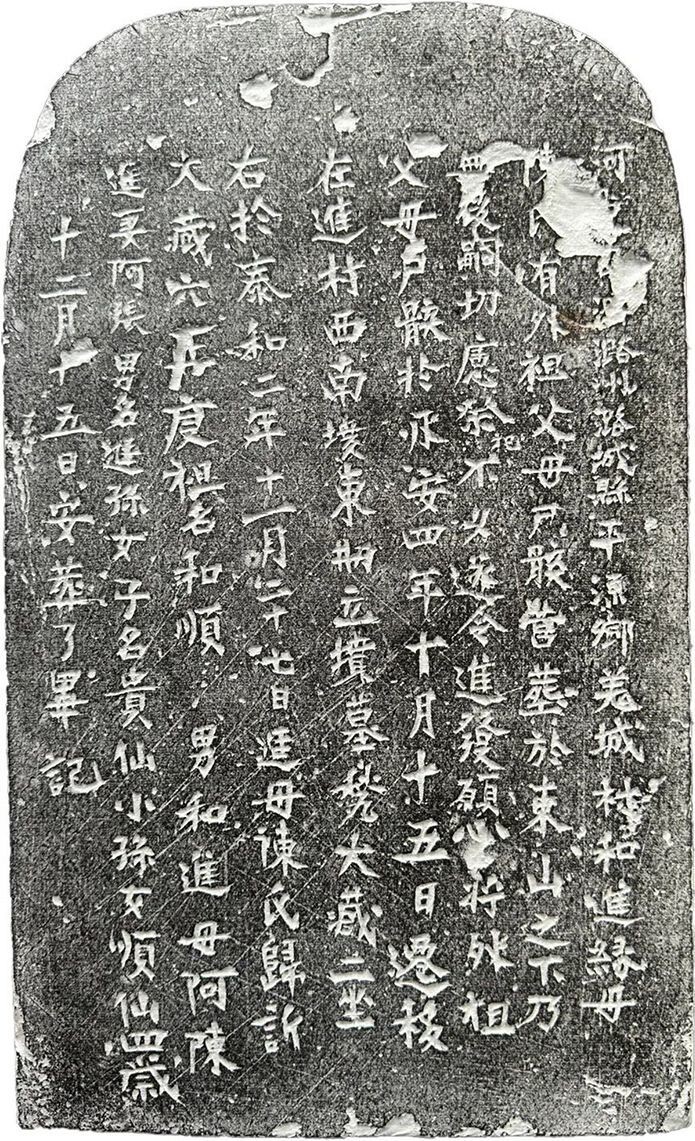 河潞州潞城縣平源鄉羌城村和進緣母
有外祖父母尸骸葬於東山之下乃
無後嗣切慮於祖不遂令進發願心將外祖
父母尸骸於承安四年十月十五日遷移
在進村西南墳東側立墳墓甃大藏二坐
右於泰和二年十一月二十七日進母陳氏歸訢
大藏穴居庚祖名和順 男和進母阿陳
進妻阿張 男名進孫女子名貴仙小孫女順仙四歲
十二月十五日安葬了畢記